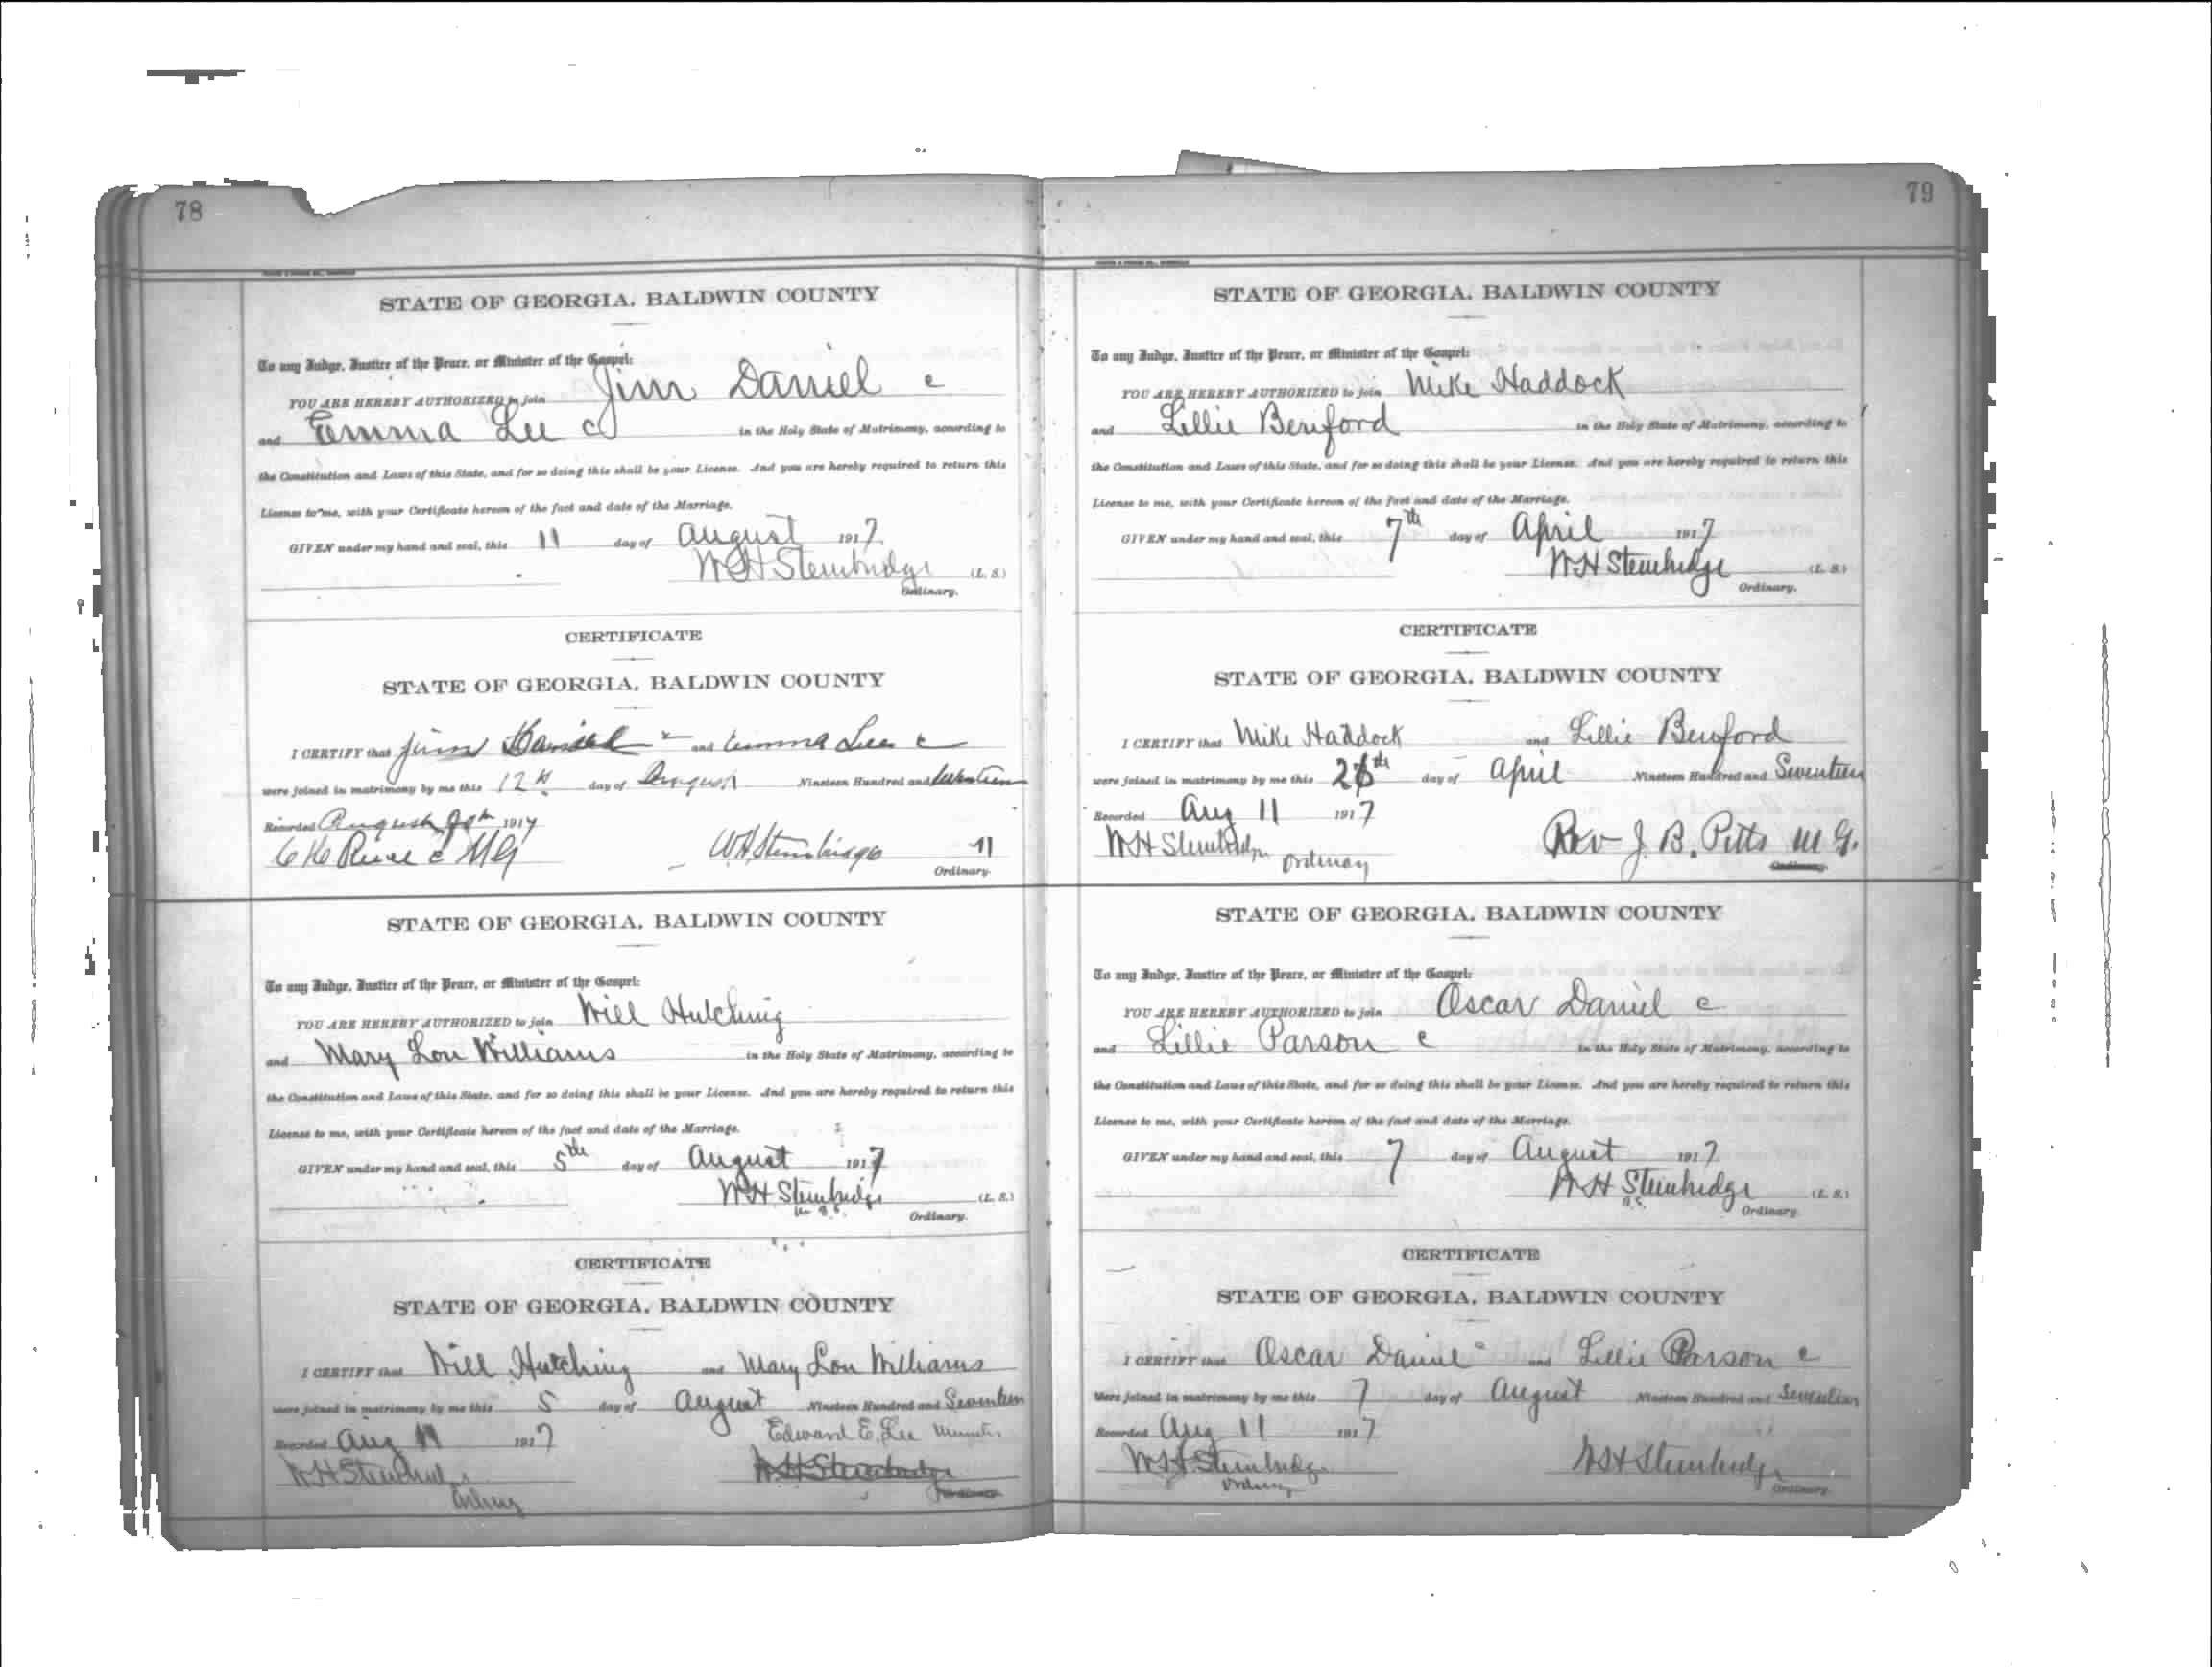 78
STATE OF GEORGIA, BALDWIN COUNTY
To any Judge, Justice of the Peace, or Minister of the Gospel:
YOU ARE HEREBY AUTHORIZED to join Jim Daniel c
and Emma Lee c in the Holy State of Matrimony, according to
the Constitution and Laws of this State, and for so doing this shall be your License. And you are hereby required to return this
License to me, with your Certificate hereon of the fact and date of the Marriage.
GIVEN under my hand and seal, this 11 day of August 1917
W H Stembridge (L. S.)
Ordinary.
CERTIFICATE
STATE OF GEORGIA, BALDWIN COUNTY
I CERTIFY that Jim Daniel c and Emma Lee c
were joined in matrimony by me this 12th day of August Nineteen Hundred and Seventeen
Recorded August 1917
M G W H Stembridge
Ordinary.
STATE OF GEORGIA, BALDWIN COUNTY
To any Judge, Justice of the Peace, or Minister of the Gospel:
YOU ARE HEREBY AUTHORIZED to join Will Hutching
and Mary Lou Williams in the Holy State of Matrimony, according to
the Constitution and Laws of this State, and for so doing this shall be your License. And you are hereby required to return this
License to me, with your Certificate hereon of the fact and date of the Marriage.
GIVEN under my hand and seal, this 5th day of August 1917
W H Stembridge (L. S.)
Ordinary.
CERTIFICATE
STATE OF GEORGIA, BALDWIN COUNTY
I CERTIFY that Will Hutching and Mary Lou Williams
were joined in matrimony by me this 5 day of August Nineteen Hundred and Seventeen
Recorded Aug 11 1917 Edward E. Lee Minister
W H Stembridge W H Stembridge
79
STATE OF GEORGIA, BALDWIN COUNTY
To any Judge, Justice of the Peace, or Minister of the Gospel:
YOU ARE HEREBY AUTHORIZED to join Mike Haddock
and Lillie Benford in the Holy State of Matrimony, according to
the Constitution and Laws of this State, and for so doing this shall be your License. And you are hereby required to return this
License to me, with your Certificate hereon of the fact and date of the Marriage.
GIVEN under my hand and seal, this 7th day of April 1917
W H Stembridge (L. S.)
Ordinary.
CERTIFICATE
STATE OF GEORGIA, BALDWIN COUNTY
I CERTIFY that Mike Haddock and Lillie Benford
were joined in matrimony by me this day of April Nineteen Hundred and Seventeen
Recorded Aug 11 1917
W H Stembridge Rev J. B. Pitts M G.
Ordinary
STATE OF GEORGIA, BALDWIN COUNTY
To any Judge, Justice of the Peace, or Minister of the Gospel:
YOU ARE HEREBY AUTHORIZED to join Oscar Daniel c
and Lillie Parson c in the Holy State of Matrimony, according to
the Constitution and Laws of this State, and for so doing this shall be your License. And you are hereby required to return this
License to me, with your Certificate hereon of the fact and date of the Marriage.
GIVEN under my hand and seal, this 7 day of August 1917
W H Stembridge (L. S.)
Ordinary
CERTIFICATE
STATE OF GEORGIA, BALDWIN COUNTY
I CERTIFY that Oscar Daniel c and Lillie Parson c
were joined in matrimony by me this 7 day of August Nineteen Hundred and Seventeen
Recorded Aug 11 1917
W H Stembridge W H Stembridge
Ordinary Ordinary.